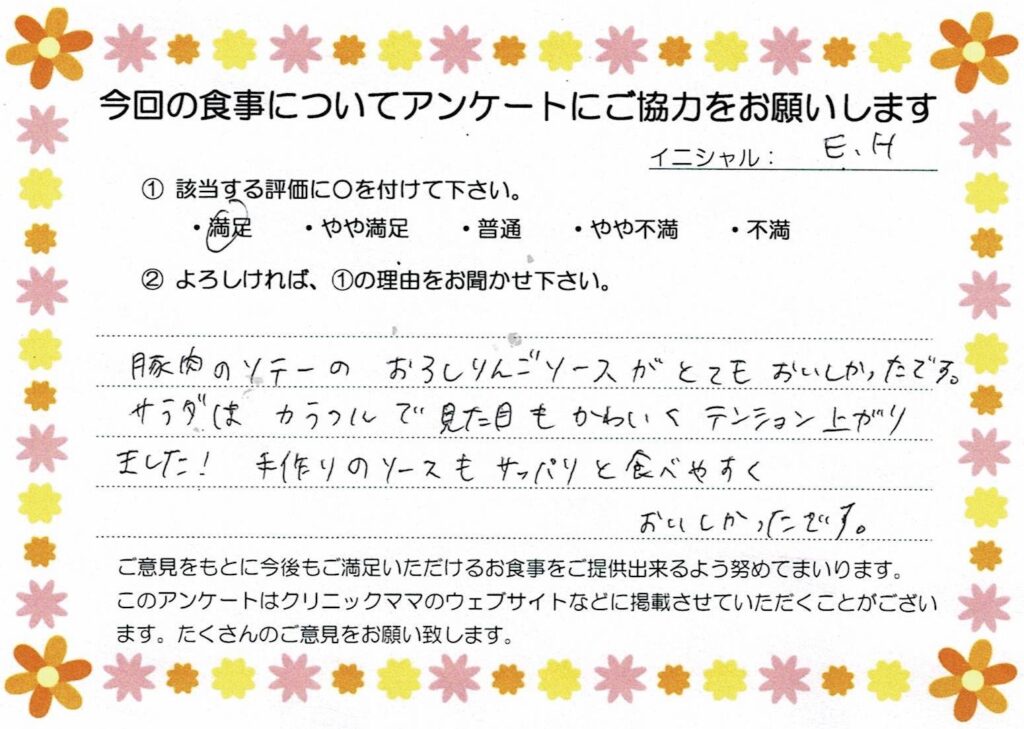 今回の食事についてアンケートにご協力をお願いします
イニシャル： E.H
① 該当する評価に〇を付けて下さい。
・満足 ・やや満足 ・普通 ・やや不満 ・不満
② よろしければ、①の理由をお聞かせ下さい。
豚肉のソテーの おろしりんごソースが とても おいしかったです。
サラダは カラフルで 見た目も かわいく テンション上がり
ました! 手作りのソースも サッパリと食べやすく
おいしかったです。
ご意見をもとに今後もご満足いただけるお食事をご提供出来るよう努めてまいります。
このアンケートはクリニックママのウェブサイトなどに掲載させていただくことがござい
ます。たくさんのご意見をお願い致します。